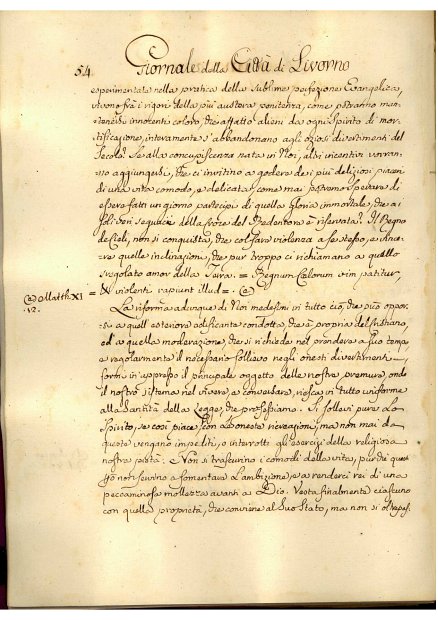 54 Giornale della Città di Livorno
esperimentata nella pratica della sublime perfezione Evangelica,
vivono frà i rigori della più austera penitenza, come potranno man-
tenersi innocenti coloro, che affatto alieni da ogni Spirito di mor-
tificazione, interamente s'abbandonano agli oziosi divertimenti del
Secolo? Se alla concupiscenza nata in Noi, altri incentivi vorran-
no aggiungersi, che ci invitino a godere de i più deliziosi piaceri
di una vita comoda, e delicata, come mai potremo sperare di
essere fatti un giorno partecipi di quella gloria immortale, che a i
soli veri seguaci della Croce del Redentore è riservata? Il Regno
de Cieli, non si conquista, che col fare violenza a se stesso, e
quelle inclinazioni, che pur troppo ci richiamano a quello
sregolato amor della Terra. = Regnum Cœlorum vim patitur,
(a) Matth. XI = & violenti rapiunt illud = (a)
12. La riforma adunque di Noi medesimi in tutto ciò, che può oppor-
si a quell'esteriore edificante condotta, che è propria del Cristiano,
ed a quella moderazione, che si richiede nel prendere a suo tempo
e regolarmente il necessario sollievo negli onesti divertimenti,
formi in appresso il principale oggetto delle nostre premure, onde
il nostro sistema nel vivere, e conversare, riesca in tutto uniforme
alla Santità della Legge, che professiamo. Si sollevi pure lo
Spirito, se così piace, con le oneste ricreazioni, ma non mai da
queste vengano impediti, o interrotti gli esercizj della religiosa
nostra pietà. Non si trascurino i comodi della vita, purchè ques-
ti non servino a fomentare l'ambizione, e a renderci rei di una
peccaminosa mollezza avanti a Dio. Vesta finalmente ciascuno
con quella proprietà, che conviene al Suo Stato, ma non si oltrepas-